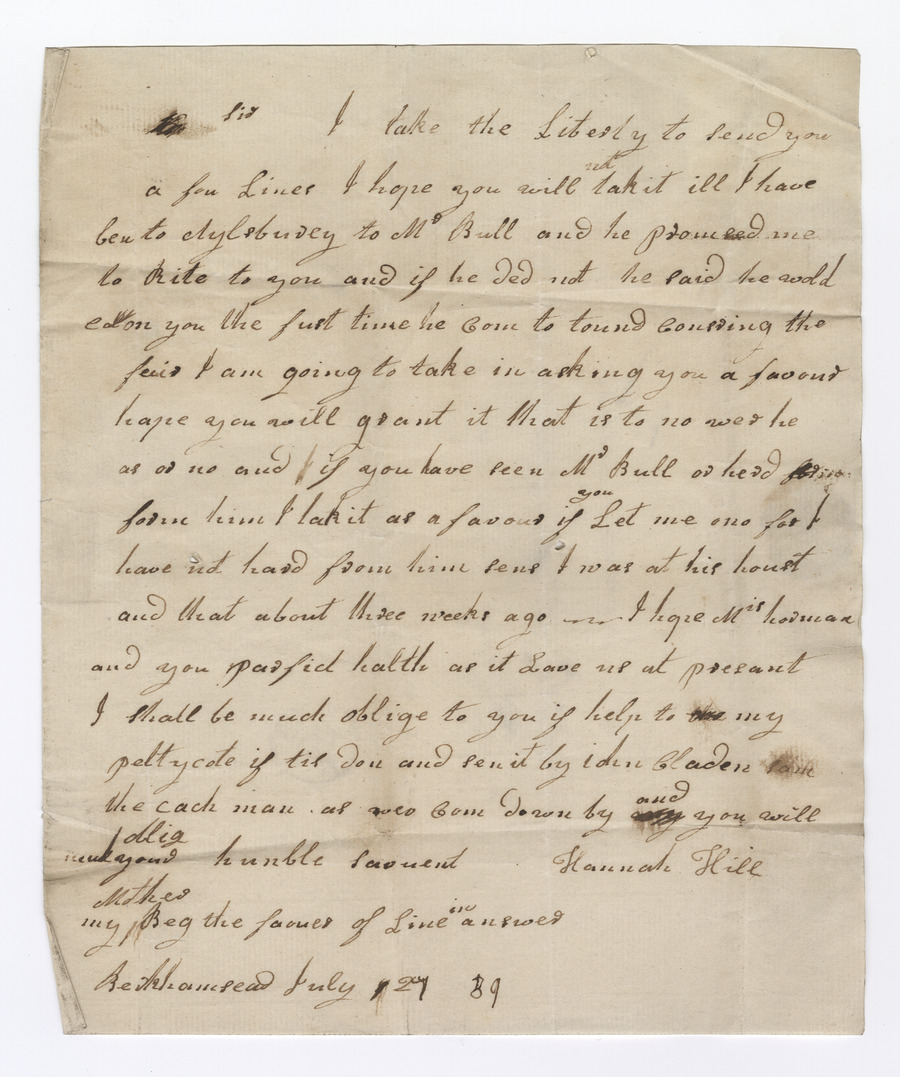 Sir I take the Liberty to send you
a fou Lines I hope you will nt takit ill I have
ben to Aylsburey to Mr Bull and he promesed me
to Rite to you and if he ded not he said he wold
on you the fust time he Com to tound Consring the
fair I am going to take in asking you a favour
hope you will grant it that is to no wer he
as or no and if you have seen Mr Bull or herd
form him I takit as a favour if you Let me ono for I
have nt hard from him sens I was at his houst
and that about three weeks ago I hope Mis horman
and you parfid halth as it Lave us at presant
I shall be much oblige to you if help to my
pettycote if tis don and senit by iohn Claden
the cach man as wee Com down by and you will
oblig
your hunble sarvent Hannah Hill
Mother
my Beg the faver of Line in answer
Berkhamsead July 27 89